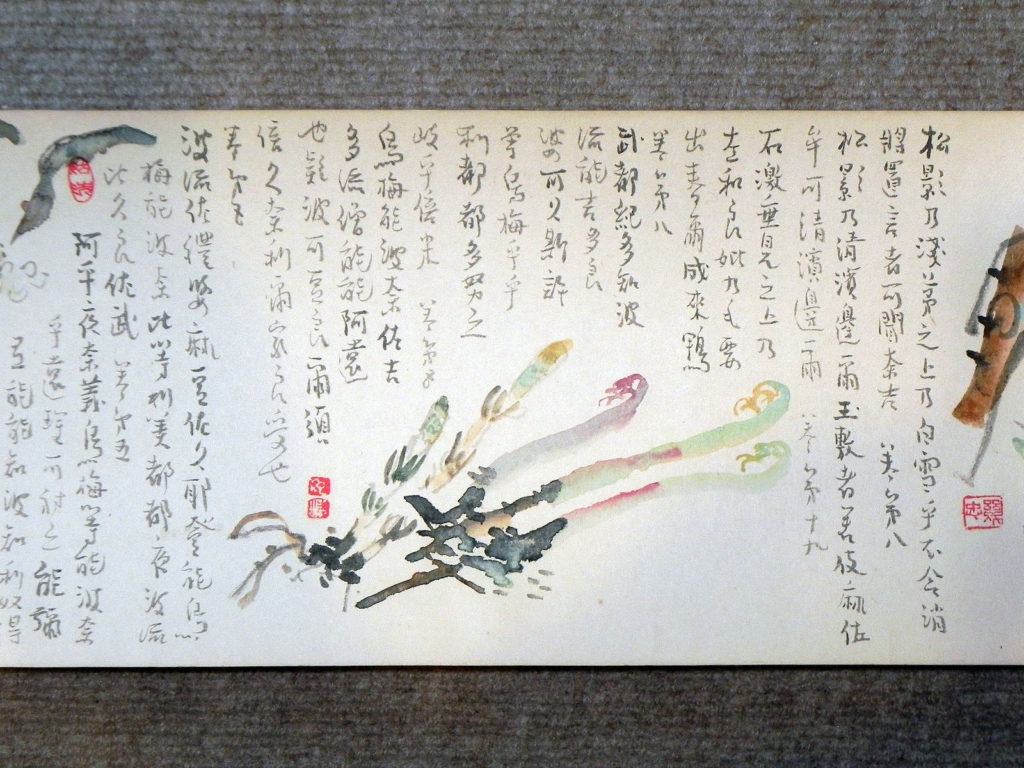 松影乃淺茅之上乃白雪乎不令消
將置言者可聞奈吉 巻第八
松影乃清濱邊爾玉敷者君伎麻佐
牟可清濱邊爾 巻第十九
石激垂見之上乃
左和良妣乃毛要
出春爾成來鴨
巻第八
武都紀多知波
流能吉多良
婆可久斯許
曽烏梅乎乎
利都都多努之
岐乎倍米 巻第五
烏梅能波奈佐吉
多流僧能能阿遠
也疑波可豆良爾須
倍久奈利爾家良受也
巻第五
波流佐禮婆麻豆佐久耶登能烏
梅能波奈比等利美都都夜波流
比久良佐武 巻第五
阿乎夜奈義烏梅等能波奈
乎遠理可射之能彌
弖能能知波知利奴得